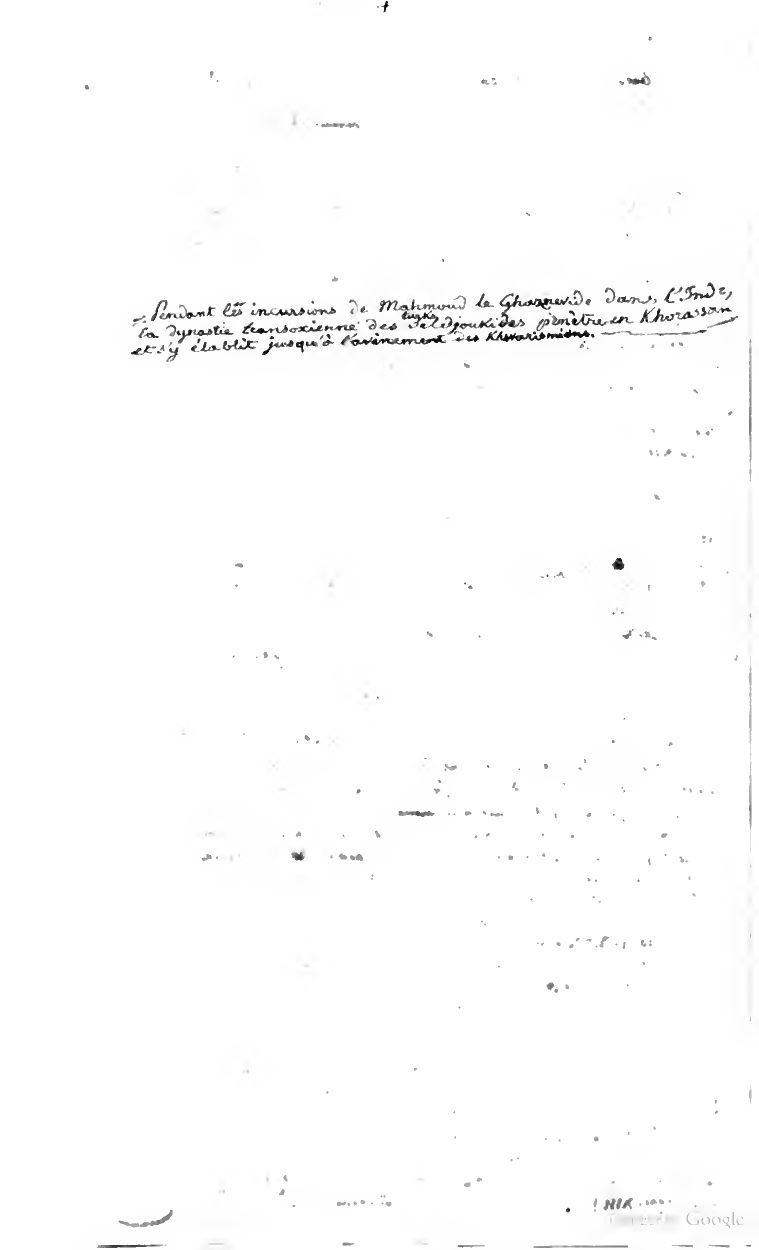 — Pendant les incursions de Mahmoud le Ghaznevide dans l'Inde,
turks
la dynastie transoxienne des Seldjoukides pénètre en Khorassan
et s'y établit jusqu'à l'avènement des Kharismiens.
Google